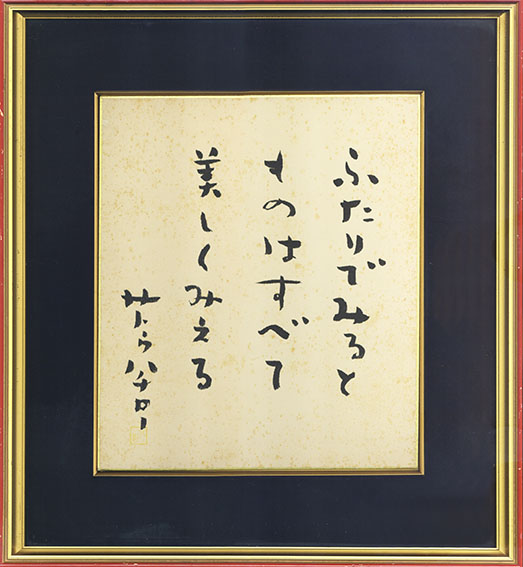 ふたりでみると
ものはすべて
美しくみえる
サトウハチロー